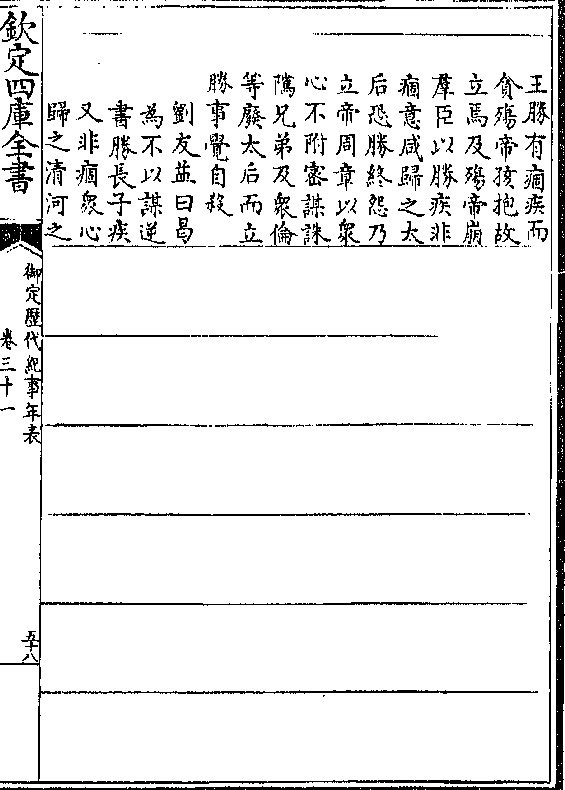 王勝有痼疾而
貪殤帝孩抱故
立焉及殤帝崩
羣臣以勝疾非
痼意咸歸之太
后恐勝終怨乃
立帝周章以衆
心不附密謀誅
隲兄弟及衆倫
等廢太后而立
勝事覺自殺
劉友益曰曷
為不以謀逆
書勝長子疾
又非痼衆心
歸之清河之
欽定四庫全書
御定歷代紀事年表
卷三十一
五十八